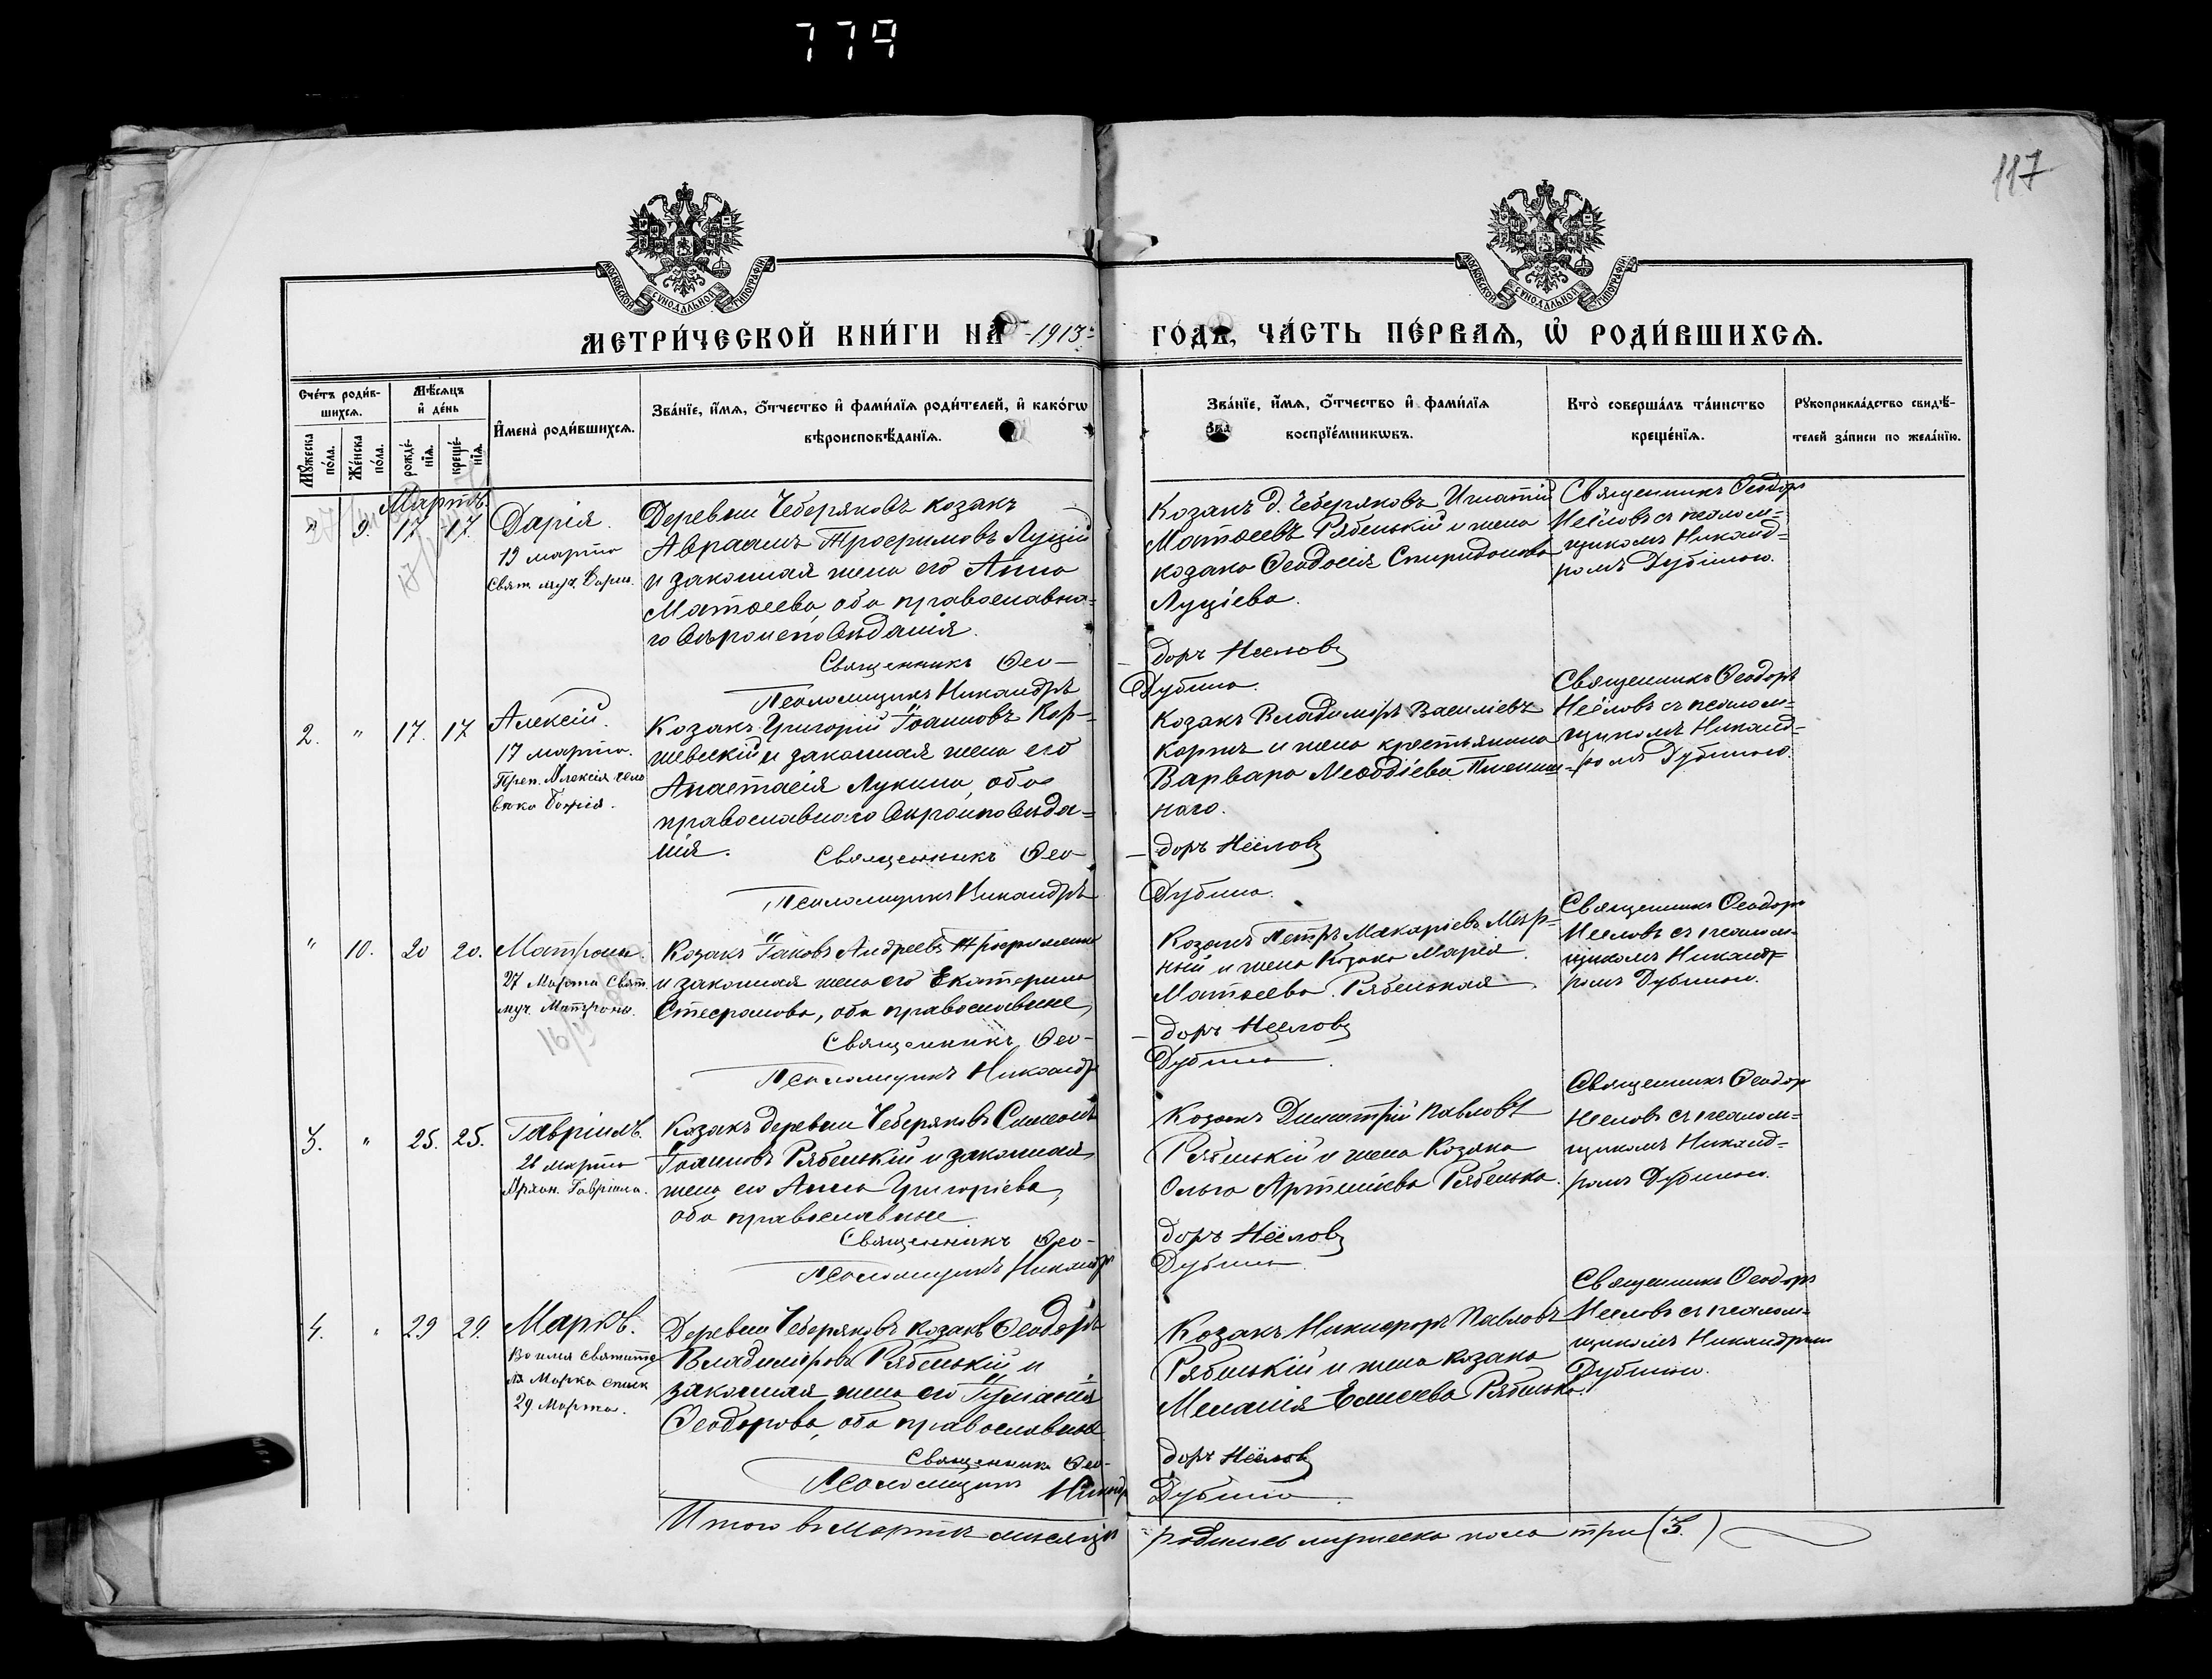 779
117
МОСКОВСКОЙ СѴНОДАЛЬНОЙ ТИПОГРАФІИ
МОСКОВСКОЙ СѴНОДАЛЬНОЙ ТИПОГРАФІИ
МЕТРИ́ЧЕСКОЙ КНИ́ГИ НА 1913 ГО́ДЪ, ЧА́СТЬ ПЕ́РВАѦ, Ѡ РОДИ́ВШИХСѦ.
Сче́тъ роди́вшихсѧ.
Мꙋжеска по́ла.
Же́нска по́ла.
Мѣ́сѧцъ и҆ де́нь
рожде́нїѧ.
креще́нїѧ.
И҆мена̀ роди́вшихсѧ.
Зва́нїе, и҆́мѧ, ѻ҆́тчество и҆ фами́лїѧ роди́телей, и҆ како́гѡ
вѣроисповѣ́данїѧ.
Зва́нїе, и҆́мѧ, ѻ҆́тчество и҆ фами́лїѧ
воспрїе́мникѡвъ.
Кто̀ соверша́лъ та́инство
креще́нїѧ.
Рꙋкоприкла́дство свидѣ́-
телей за́писи по жела́нїю.
Мартъ.
" 9. 17 17. Дарія.
19 марта
Свят. муч. Даріи.
Деревни Чеберяковъ козакъ
Авраамъ Трофимовъ Луцій
и законная жена его Анна
Матѳеева, оба православна-
го вѣроисповѣданія.
Священникъ Ѳео-
Псаломщикъ Никандръ
Козакъ д. Чеберяковъ Игнатій
Матѳеевъ Рябенькій и жена
козака Ѳеодосія Спиридонова
Луціева.
доръ Нееловъ
Дубина.
Священникъ Ѳеодоръ
Неёловъ съ псалом-
щикомъ Никанд-
ромъ Дубиною.
2. " 17. 17 Алексій.
17 марта.
Преп. Алексія чело
вѣка Божія.
Козакъ Григорій Іоанновъ Кор-
шевскій и законная жена его
Анастасія Лукина, оба
православнаго вѣроисповѣда-
нія.
Священникъ Ѳео
Псаломщикъ Никандръ
Козакъ Владиміръ Василіевъ
Коржъ и жена крестьянина
Варвара Меѳодіева Пшенич-
наго.
доръ Неёловъ
Дубина.
Священникъ Ѳеодоръ
Неёловъ съ псалом-
щикомъ Никанд-
ромъ Дубиною.
" 10. 20 20. Матрона.
27 Марта Свят.
муч. Матроны.
Козакъ Іаковъ Андреевъ
и законная жена его Екатерина
Стефанова, оба православные,
Священникъ Ѳео-
Псаломщикъ Никандр
Козакъ Петръ Макаріевъ Мѣр-
ный и жена Козака Марія
Матѳеева Рябенькая.
доръ Нееловъ
Дубина
Священникъ Ѳеодоръ
Нееловъ съ псалом-
щикомъ Никанд
ромъ Дубиною.
3. " 25. 25. Гавріилъ.
26 марта
Архан. Гавріила.
Козакъ деревни Чеберяковъ Симеонъ
Іоанновъ Рябенькій и законная
жена его Анна Григоріева,
оба православные
Священникъ Ѳео-
Псаломщикъ Никандр
Козакъ Димитрій Павловъ
Рябенькій и жена Козака
Ольга Артеміева Рябенька.
доръ Неёловъ
Дубина.
Священникъ Ѳеодор
Нееловъ съ псалом-
щикомъ Никанд-
ромъ Дубиною.
4. " 29 29. Маркъ.
Во имя святите
ля Марка еписк
29 Марта.
Деревни Чеберяковъ козакъ Ѳеодоръ
Владиміровъ Рябенькій и
законная жена его Іуліанія
Ѳеодорова, оба православные
Священникъ Ѳео-
Псаломщикъ Никандр
Козакъ Никифоръ Павловъ
Рябенькій и жена козака
Меланія Елисеева Рябенька.
доръ Неёловъ
Дубина
Священникъ Ѳеодоръ
Нееловъ съ псалом-
щикомъ Никандромъ
Дубиною.
Итого въ Мартѣ мѣсяцѣ родилось мужеска пола три (3.)